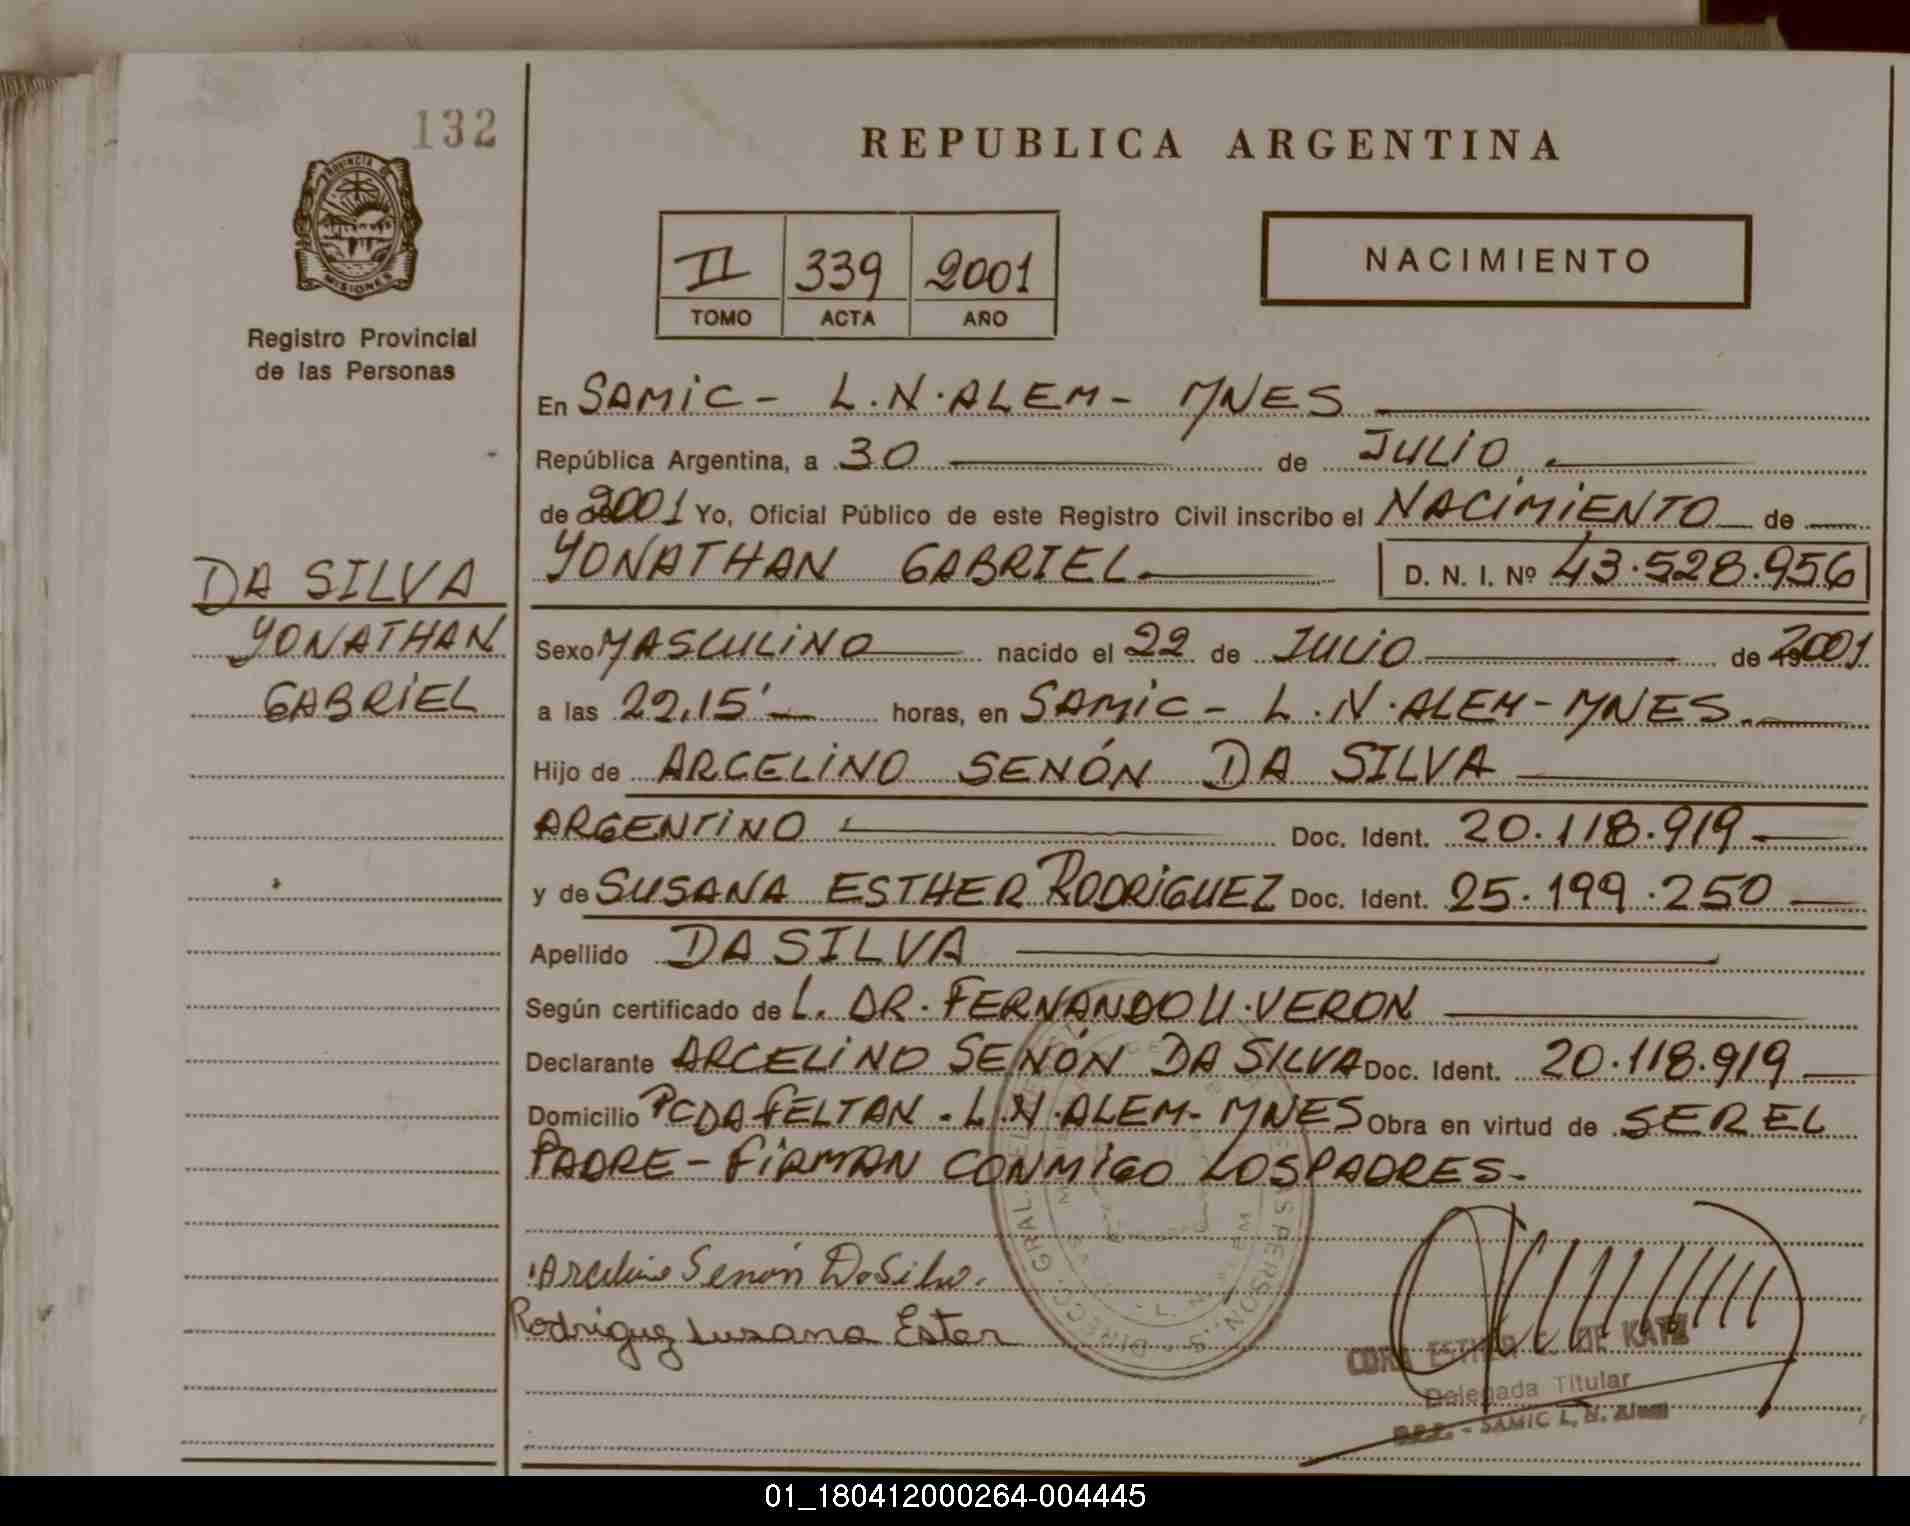 132
PROVINCIA DE
MISIONES
Registro Provincial
de las Personas
DA SILVA
YONATHAN
GABRIEL
REPUBLICA ARGENTINA
II 339 2001
TOMO ACTA AÑO
NACIMIENTO
En SAMIC - L.N. ALEM - MNES
República Argentina, a 30 de JULIO
de 2001 Yo, Oficial Público de este Registro Civil inscribo el NACIMIENTO de
YONATHAN GABRIEL D. N. I. Nº 43.528.956
Sexo MASCULINO nacido el 22 de JULIO de 2001
a las 22,15' horas, en SAMIC - L.N. ALEM - MNES.
Hijo de ARCELINO SENÓN DA SILVA
ARGENTINO Doc. Ident. 20.118.919
y de SUSANA ESTHER RODRIGUEZ Doc. Ident. 25.199.250
Apellido DA SILVA
Según certificado de L. DR. FERNANDO U. VERON
Declarante ARCELINO SENÓN DA SILVA Doc. Ident. 20.118.919
Domicilio PCDA FELTAN - L.N. ALEM - MNES Obra en virtud de SER EL
PADRE - FIRMAN CONMIGO LOS PADRES -
Arcelino Senón DaSilva.
Rodriguez Susana Ester
ESTHER DE KATZ
Delegada Titular
SAMIC L. N. Alem
01_180412000264-004445